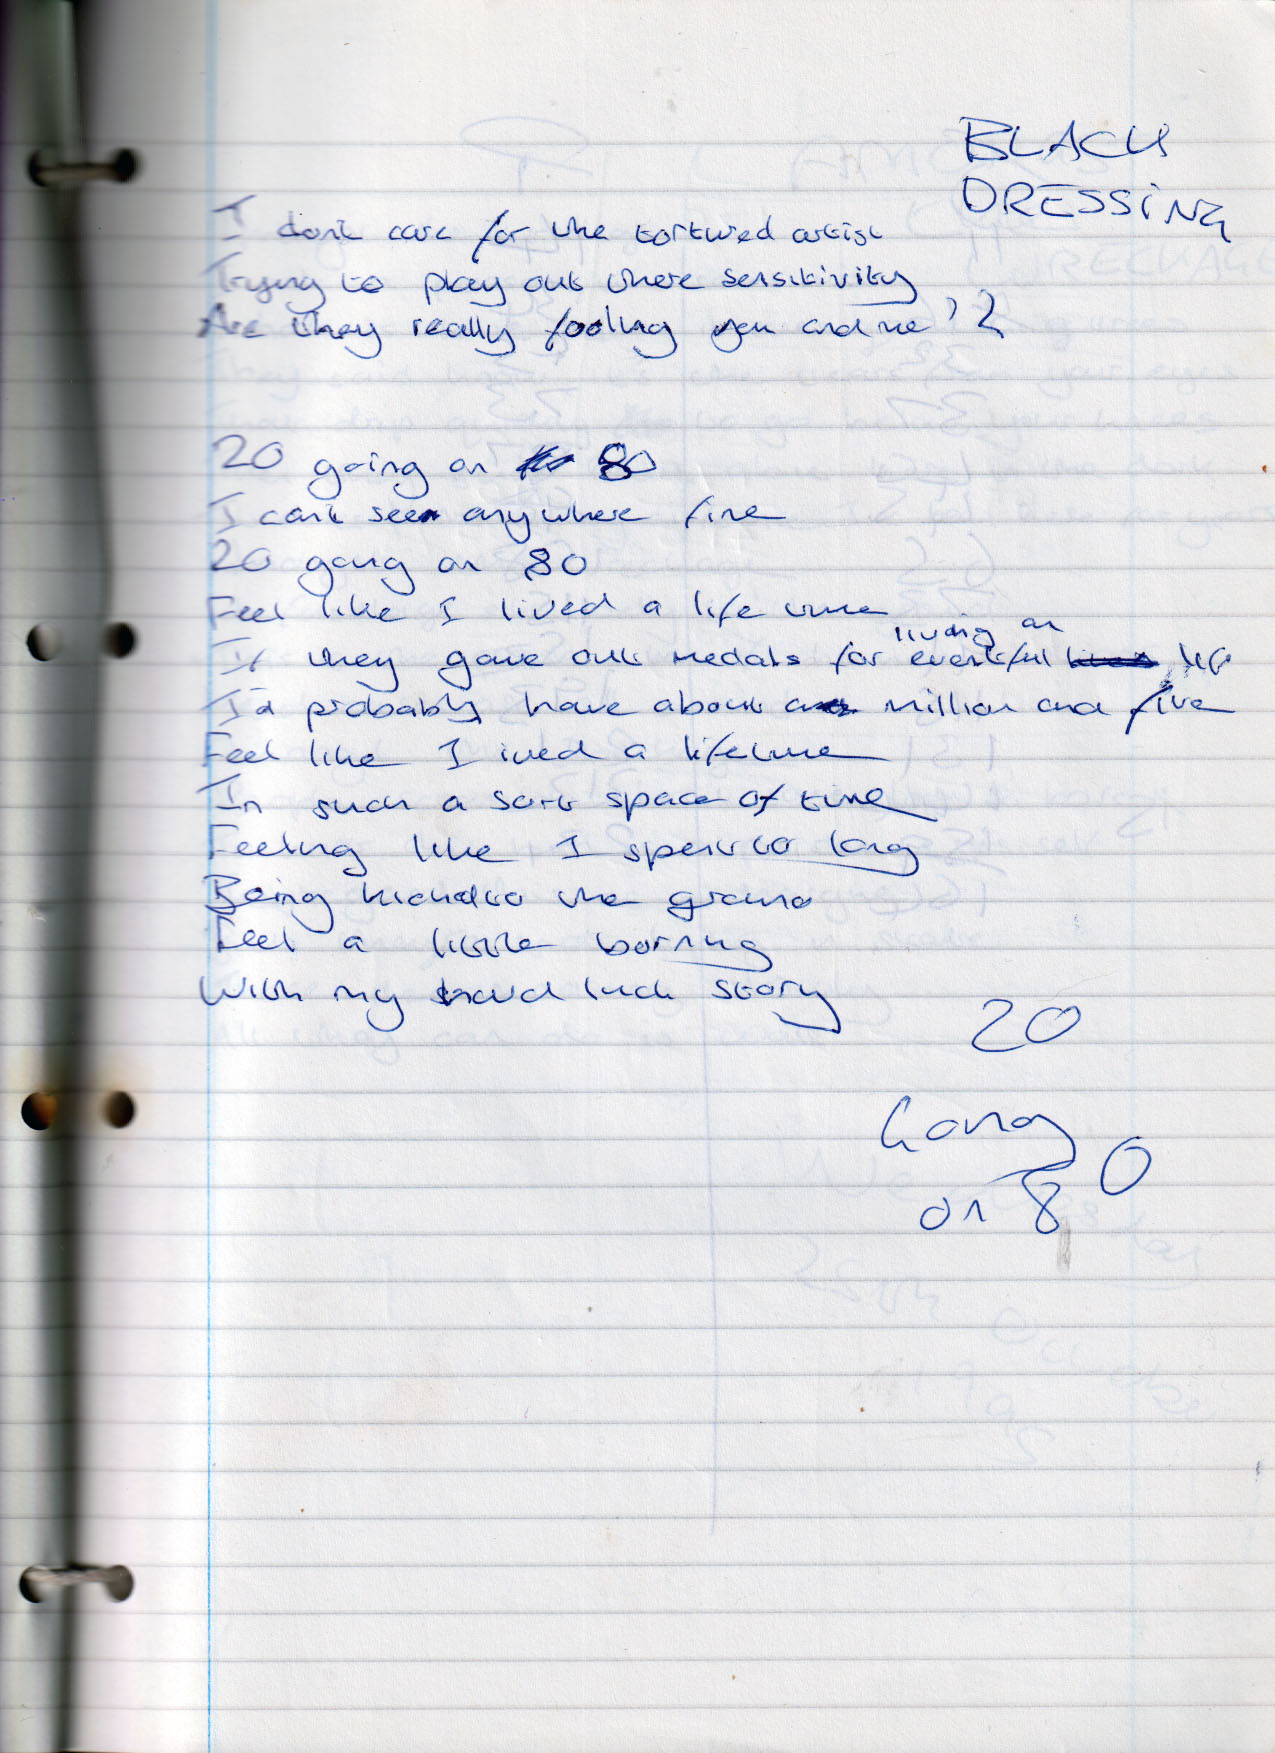 BLACK
DRESSING
I dont care for the tortured artist
Trying to play out there sensitivity
Are they really fooling you and me ' 2
20 going on 80
I cant see anywhere fine
20 going on 80
Feel like I lived a life time
living an
If they gave out medals for eventful life
I'd probably have about million and five
Feel like I ived a lifetime
In such a sort space of time
Feeling like I spent to long
Being to the ground
Feel a little borring
With my hard luck story
20
Going
on 80